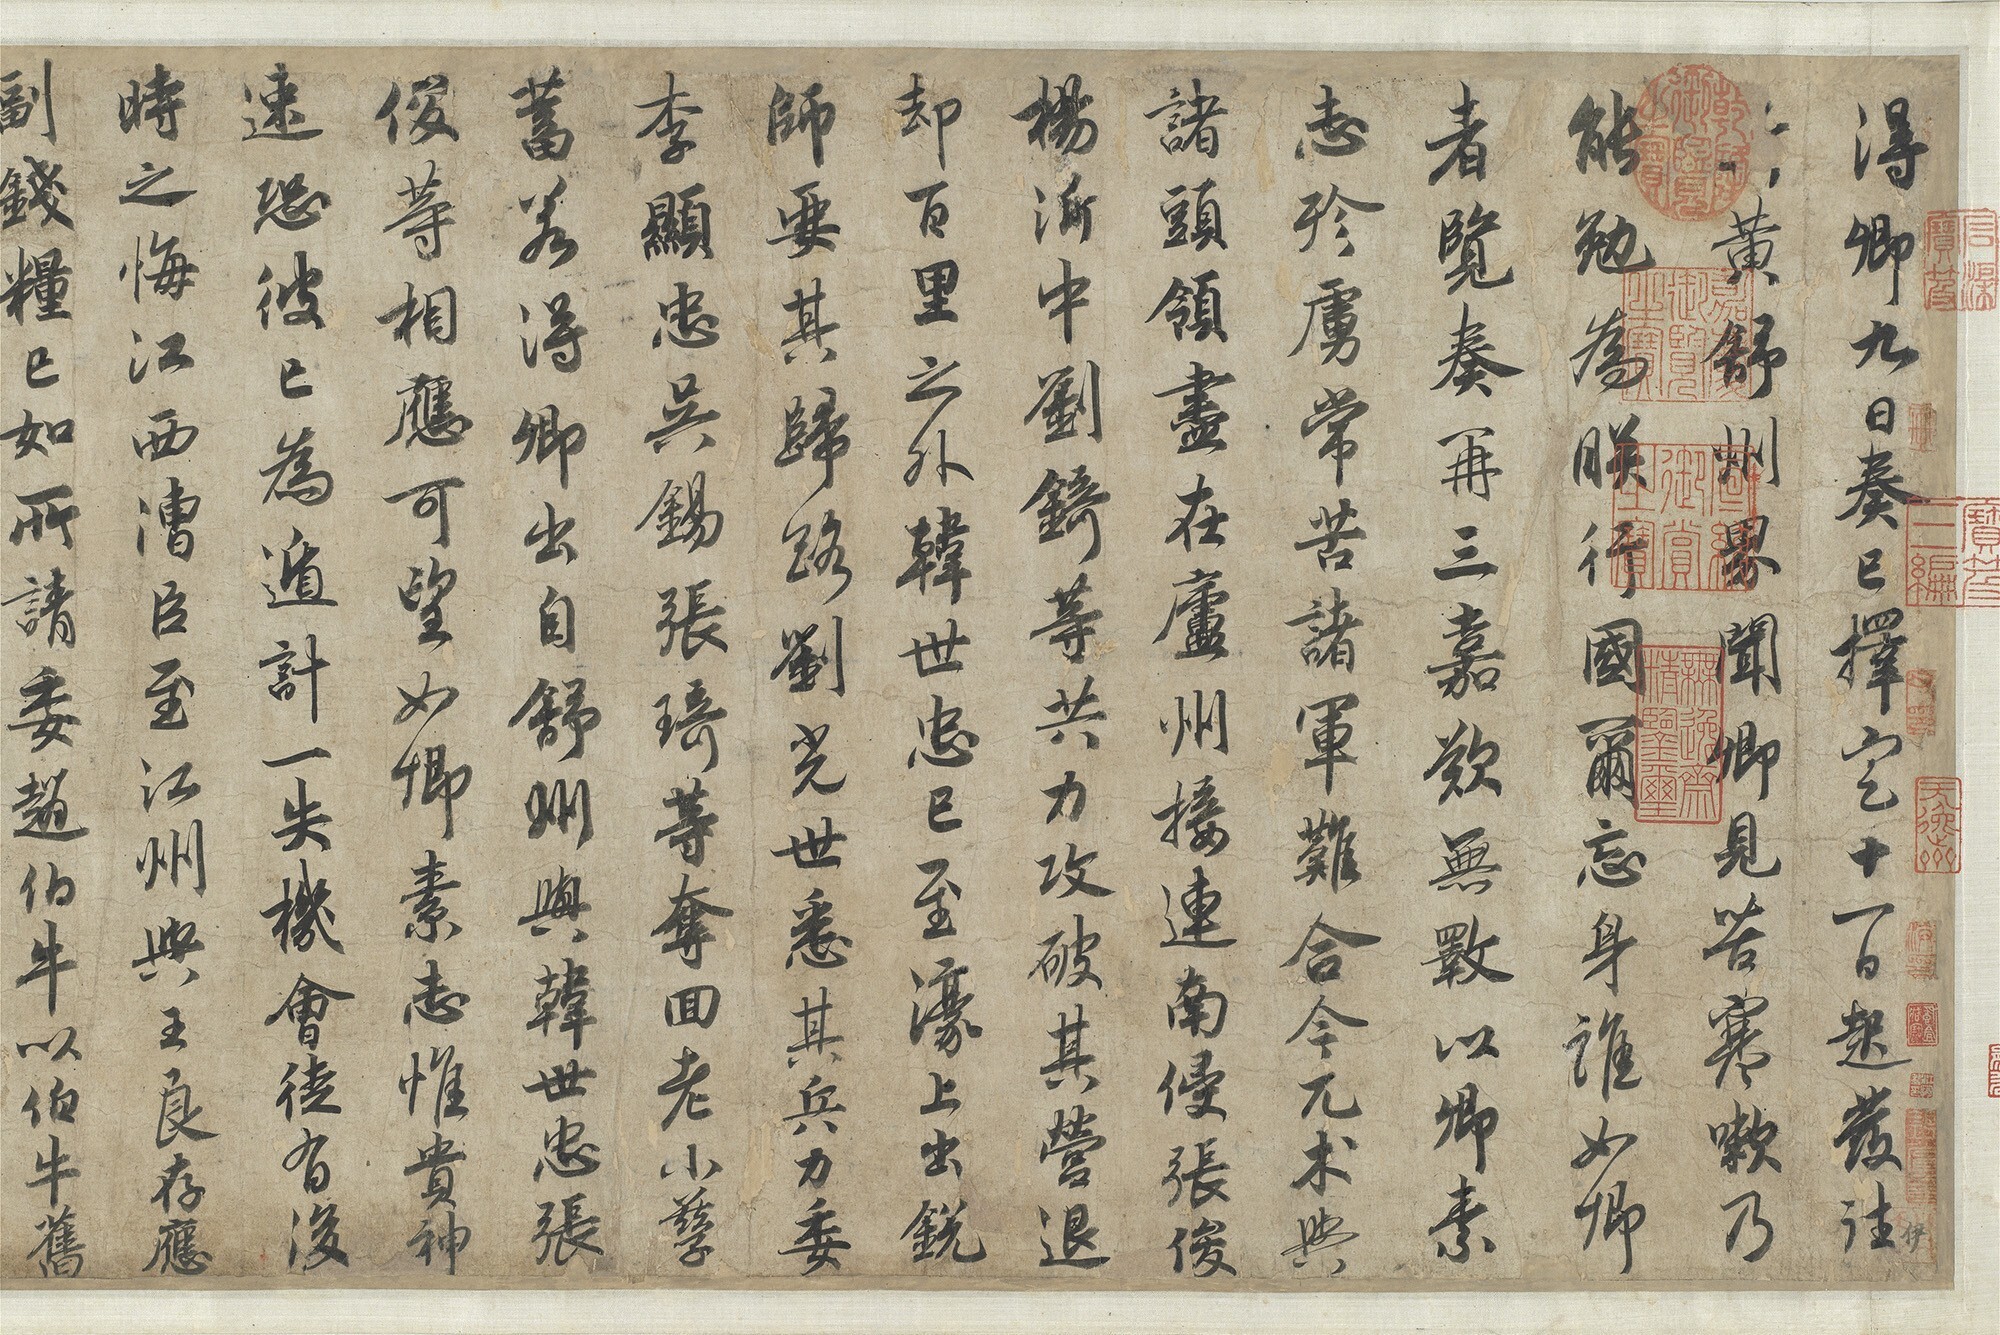 得卿九日奏已擇定十一日起發往
黃舒州界聞卿見苦寒嗽乃
能勉為朕行國爾忘身誰如卿
者覽奏再三嘉歎無斁以卿素
志殄虜常苦諸軍難合今兀朮與
諸頭領盡在廬州接連南侵張俊
楊沂中劉錡等共力攻破其營退
却百里之外韓世忠已至濠上出銳
師要其歸路劉光世悉其兵力委
李顯忠吳錫張琦等奪回老小孳
蓄若得卿出自舒州與韓世忠張
俊等相應可望如卿素志惟貴神
速恐彼已為遁計一失機會徒有後
時之悔江西漕臣至江州與王良存應
副錢糧已如所請委趙伯牛以伯牛舊